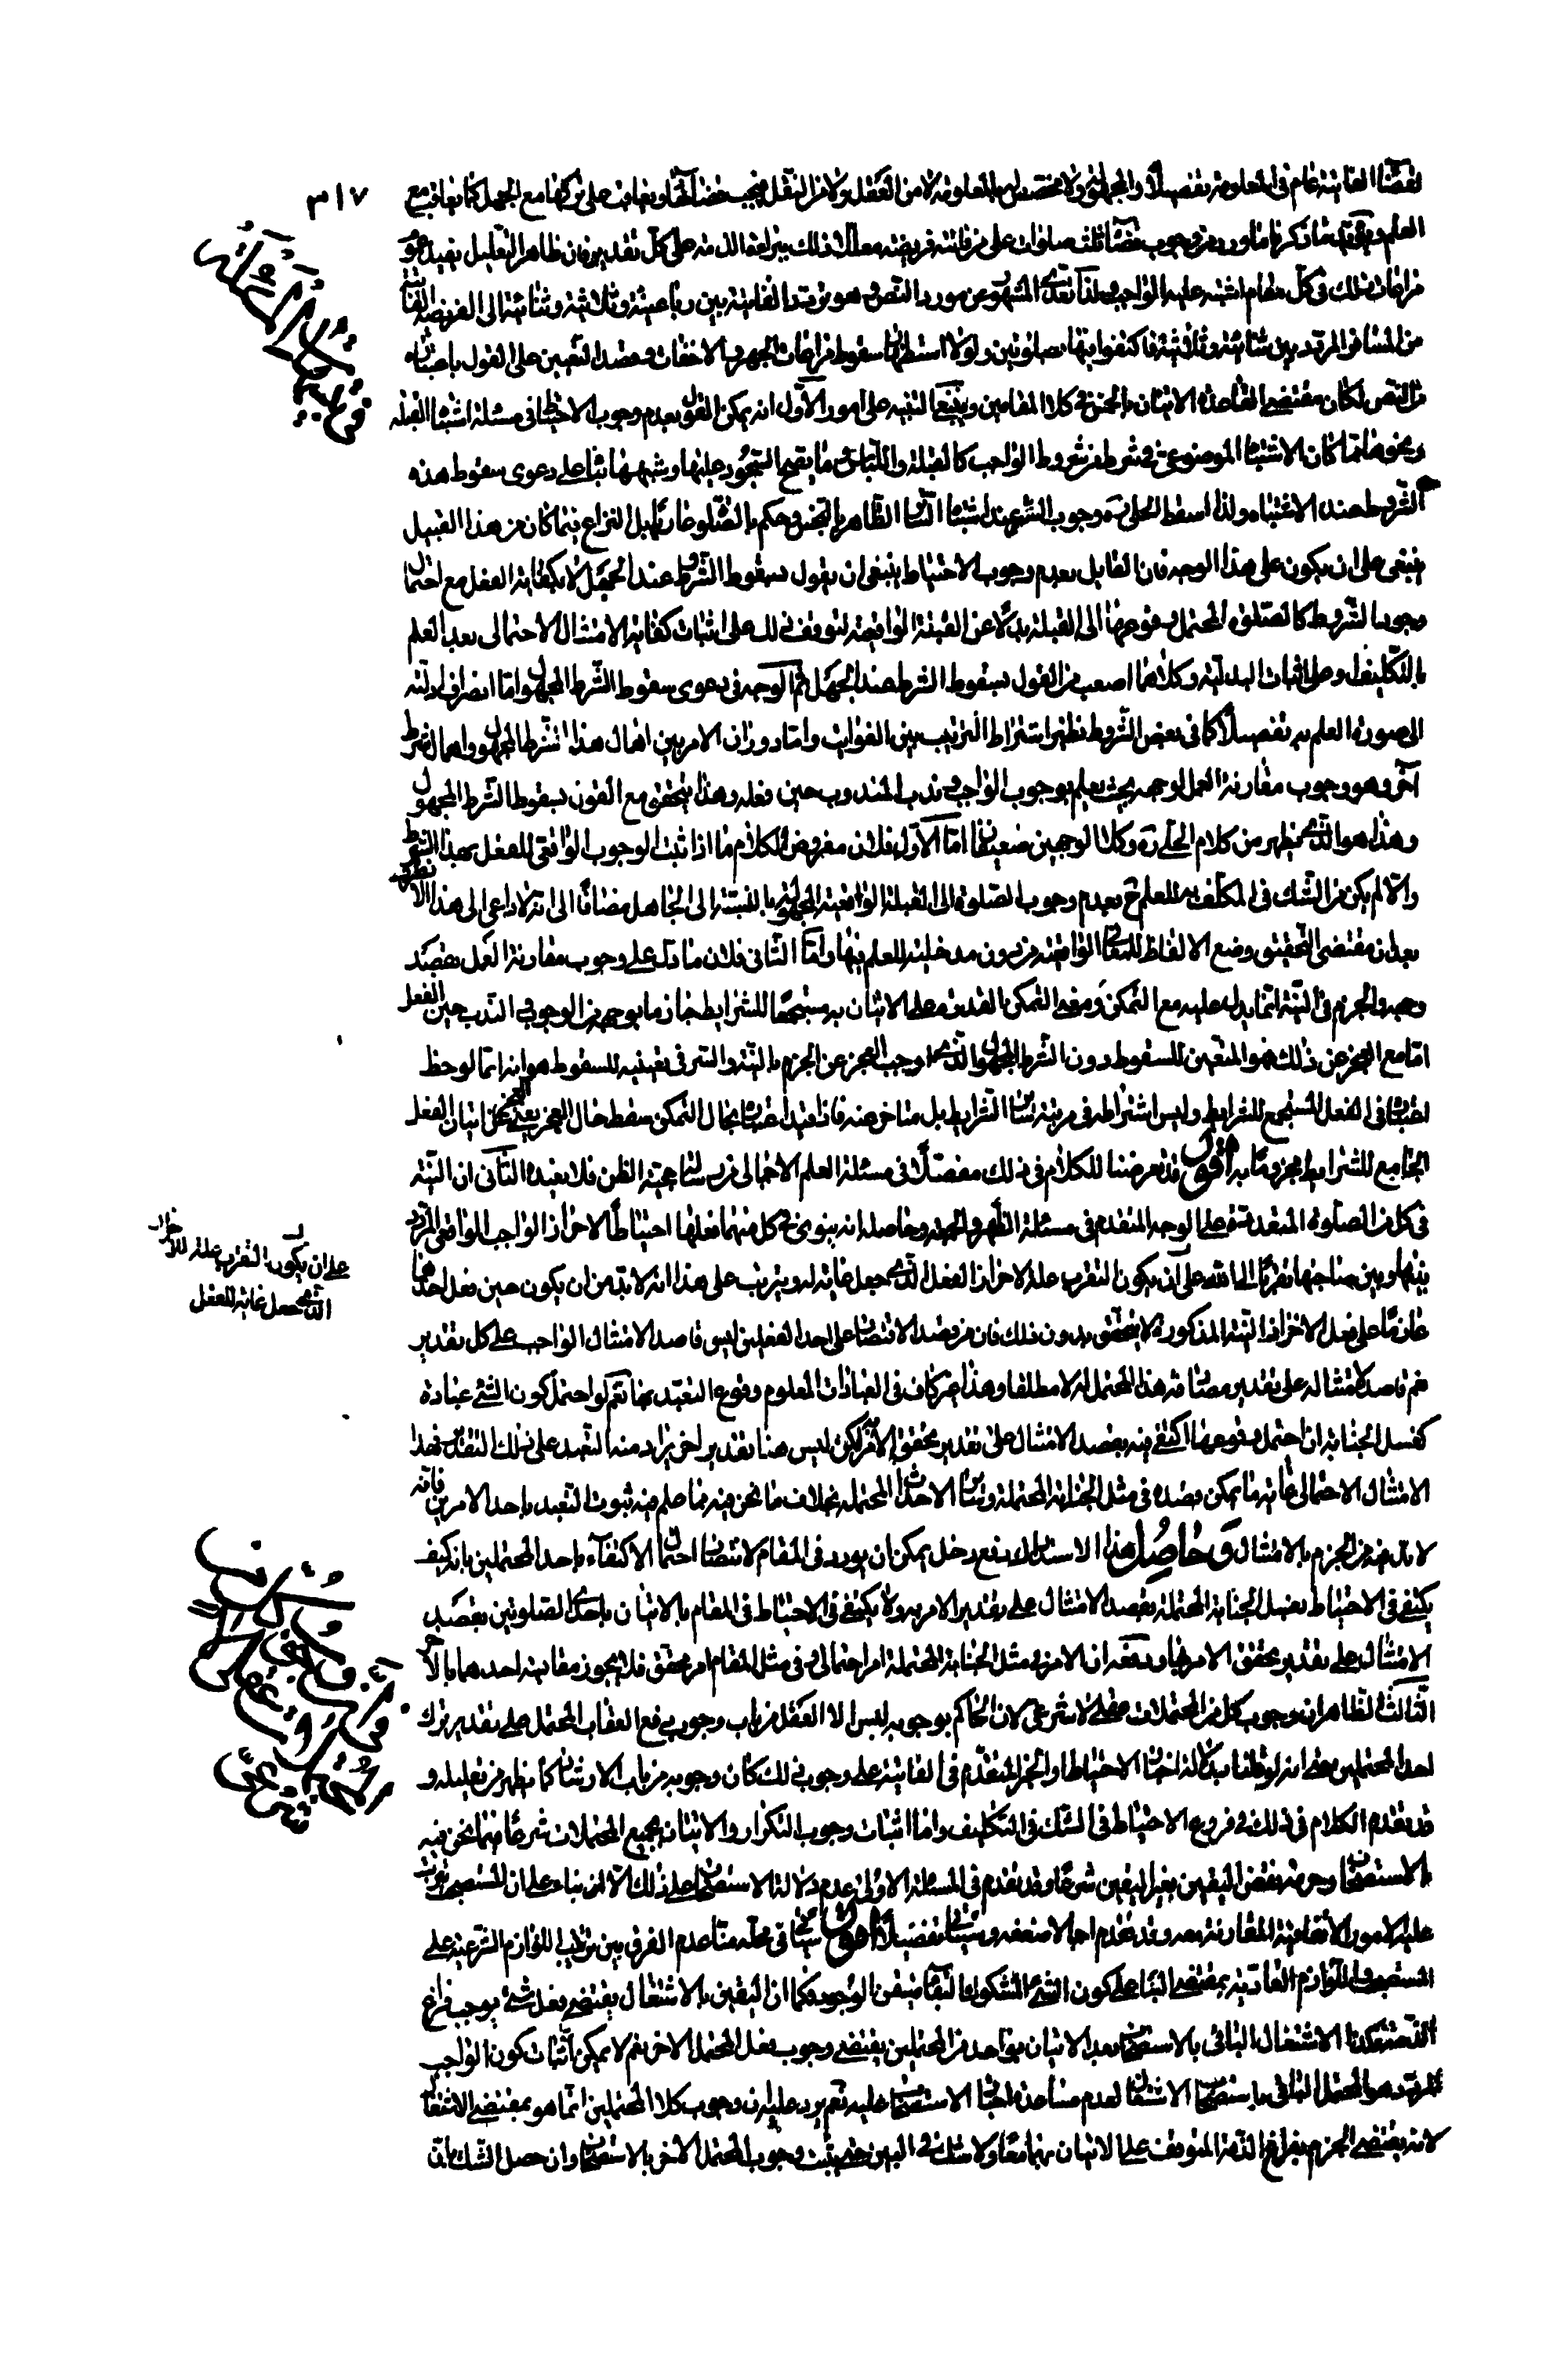 ٣١٧
بقضاء الفائتة عام في المعلومة تفصيلا والمجهولة ولا مخصص لها بالمعلومة لا من العقل ولا من النقل فيجب قضائها ويعاقب على تركها مع الجهل كما يعاقب مع
العلم ويؤيد ما ذكرنا ما ورد من وجوب قضاء ثلث صلوات على من فاتته فريضة معللا ذلك ببراءة الذمة على كل تقدير فان ظاهر التعليل يفيد عموم
مراعات ذلك في كل مقام اشتبه عليه الواجب ولذا تعدى المشهور عن مورد النص وهو تردد الفائتة بين رباعية وثلاثية وثنائية الى الفريضة الفائتة
من المسافر المرددة بين ثنائية وثلاثية فاكتفوا فيها بصلوتين ولولا استظهارهم سقوط مراعات الجهر والاخفات وقصد التعيين على القول باعتباره
من النص لكان مقتضى القاعدة الاتيان بالخمس في كلا المقامين وينبغي التنبيه على امور الاول انه يمكن القول بعدم وجوب الاحتياط في مسئلة اشتباه القبلة
ونحوها مما كان الاشتباه الموضوعي في شرط من شروط الواجب كالقبلة واللباس وما يصح السجود عليه وشبهها بناء على دعوى سقوط هذه
الشروط عند الاشتباه ولذا اسقط الحلي ره وجوب الستر عند اشتباه الساتر الطاهر بالنجس وحكم بالصلوة عاريا بل النزاع فيما كان من هذا القبيل
ينبغي على ان يكون على هذا الوجه فان القايل بعدم وجوب الاحتياط ينبغي ان يقول بسقوط الشروط عند الجهل لا بكفاية الفعل مع احتمال
وجود الشروط كالصلوة المحتمل وقوعها الى القبلة بدلا عن القبلة الواقعية لتوقف ذلك على اثبات كفاية الامتثال الاحتمالي بعد العلم
بالتكليف وعلى اثبات البدلية وكلاهما اصعب من القول بسقوط الشرط عند الجهل ثم الوجه في دعوى سقوط الشرط المجهول اما انصراف ادلته
الى صورة العلم به تفصيلا كما في بعض الشروط نظير اشتراط الترتيب بين الفوائت واما دوران الامر بين اهمال هذا الشرط المجهول واهمال شرط
آخر وهو وجوب مقارنة العمل لوجهه بحيث يعلم بوجوب الواجب وندب المندوب حين فعله وهذا يتحقق مع القول بسقوط الشرط المجهول
وهذا هو الذي يظهر من كلام الحلي ره وكلا الوجهين ضعيفان اما الاول فلان مفروض الكلام ما اذا ثبت الوجوب الواقعي للفعل بهذا الشرط
والا لم يكن من الشك في المكلف به للعلم ح بعدم وجوب الصلوة الى القبلة الواقعية المجهولة بالنسبة الى الجاهل مضافا الى انه لا داعي الى هذا الانصراف
بعد ان مقتضى التحقيق وضع الالفاظ للمعاني الواقعية من دون مدخلية للعلم فيها واما الثاني فلان ما دل على وجوب مقارنة العمل بقصد
وجهه والجزم في النية انما يدل عليه مع التمكن ومعنى التمكن القدرة على الاتيان به مستجمعا للشرائط جازما بوجهه من الوجوب والندب حين الفعل
اما مع العجز عن ذلك فهو المتعين للسقوط دون الشرط المجهول الذي اوجب العجز عن الجزم بالنية والسر في تعيينه للسقوط هو انه انما لوحظ
اعتباره في الفعل المستجمع للشرائط وليس اشتراطه في مرتبة سائر الشرائط بل متاخر عنه فاذا قيد اعتباره بحال التمكن سقط حال العجز يعني العجز عن اتيان الفعل
الجامع للشرائط مجزوما به اقول قد تعرضنا للكلام في ذلك مفصلا في مسئلة العلم الاجمالي من رسالة حجية الظن فلا نعيد الثاني ان النية
في كل من الصلوة المتعددة على الوجه المتقدم في مسئلة الظهر والجمعة وحاصله انه ينوي في كل منهما فعلها احتياطا لاحراز الواجب الواقعي المردد
بينها وبين صاحبها تقربا الى الله على ان يكون التقرب علة لاحراز الفعل الذي جعل غاية له ويترتب على هذا انه لا بد من ان يكون حين فعل احدهما
عازما على فعل الاخر اذ النية المذكورة لا يتحقق بدون ذلك فان من قصد الاقتصار على احد الفعلين ليس قاصدا لامتثال الواجب على كل تقدير
نعم قاصد لامتثاله على تقدير مصادفة هذا المحتمل له لا مطلقا وهذا غير كاف في العبادات المعلوم وقوع التعبد بها نعم لو احتمل كون الشيء عبادة
كغسل الجنابة ان احتمل وقوعها اكتفى فيه بقصد الامتثال على تقدير تحقق الامر به لكن ليس هنا تقدير اخر يراد منه التعبد على ذلك التقدير فهذا
الامتثال الاحتمالي غاية ما يمكن قصده في مثل الجنابة المحتملة وسائر الاحداث المحتملة بخلاف ما نحن فيه مما علم فيه ثبوت التعبد باحد الامرين فانه
لا بد فيه من الجزم بالامتثال وحاصل هذا الاستدلال دفع دخل يمكن ان يورد في المقام لانتصار احتمال الاكتفاء باحد المحتملين بانه كيف
يكتفى في الاحتياط بغسل الجنابة المحتملة بقصد الامتثال على تقدير الامر به ولا يكتفى في الاحتياط في المقام بالاتيان باحدى الصلوتين بقصد
الامتثال على تقدير تحقق الامر بها ودفعه ان الامر في مثل الجنابة المحتملة امر احتمالي وفي مثل المقام امر محقق فلا يجوز مقايسة احدهما بالاخر
الثالث الظاهر ان وجوب كل من المحتملات عقلي لا شرعي لان الحاكم بوجوبه ليس الا العقل من باب وجوب دفع العقاب المحتمل على تقدير ترك
احد المحتملين حتى انه لو قلنا بدلالة اخبار الاحتياط او الخبر المتقدم في الفائتة على وجوب ذلك كان وجوبه من باب الارشاد كما يظهر من تعليله و
قد تقدم الكلام في ذلك في فروع الاحتياط في الشك في التكليف واما اثبات وجوب التكرار والاتيان بجميع المحتملات شرعا فيما نحن فيه
بالاستصحاب وحرمة نقض اليقين بغير اليقين شرعا وقد تقدم في المسئلة الاولى عدم دلالة الاستصحاب على ذلك الا بناء على ان المستصحب يترتب
عليه الامور الاتفاقية المقارنة معه وقد تقدم اجمالا ضعفه وسيأتي تفصيلا اقول سيأتي في محله منا عدم الفرق بين ترتيب اللوازم الشرعية على
المستصحب واللوازم العادية بمقتضى البناء على كون الشيء المشكوك البقاء متيقن الوجود فكما ان اليقين بالاشتغال يقتضي فعل شيء يوجب فراغ
الذمة فكذا الاشتغال الباقي بالاستصحاب بعد الاتيان بواحد من المحتملين يقتضي وجوب فعل المحتمل الاخر نعم لا يمكن اثبات كون الواجب
المردد هو المحتمل الباقي باستصحاب الاشتغال لعدم مساعدة اخبار الاستصحاب عليه نعم يرد عليه ان وجوب كلا المحتملين انما هو بمقتضى الاشتغال
لانه يقتضي الجزم بفراغ الذمة المتوقف على الاتيان بهما معا ولا شك في البين حتى يثبت وجوب المحتمل الاخر بالاستصحاب وان حصل الشك بان
على ان يكون التقرب علة للاحراز
الذي جعل غاية للفعل